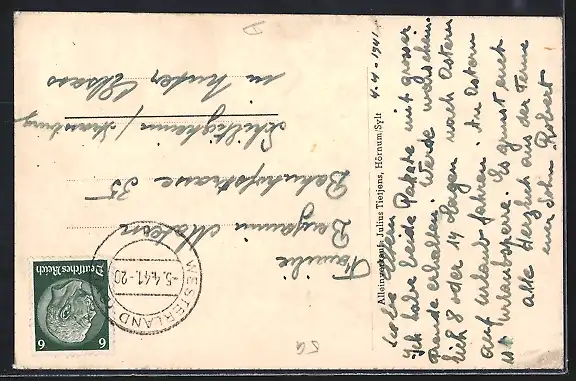 4.4.1941
Liebe Eltern
Ich habe beide Pakete mit grosser
Freude erhalten. Werde warscheinlich
8 oder 14 Tagen nach Ostern
auf Urlaub fahren. An Ostern
ist Urlaubsperre. Es grüsst euch
alle Herzlich aus der Ferne
euer Sohn Robert
Alleinverkauf: Julius Tietjens, Hörnum/Sylt
Familie
Benjamin
Bahnhofstrasse 35
Schiltigheim / Strassburg
im Unter Elsass
Deutsches Reich
6 6
WESTERLAND
-5.4.41.-20